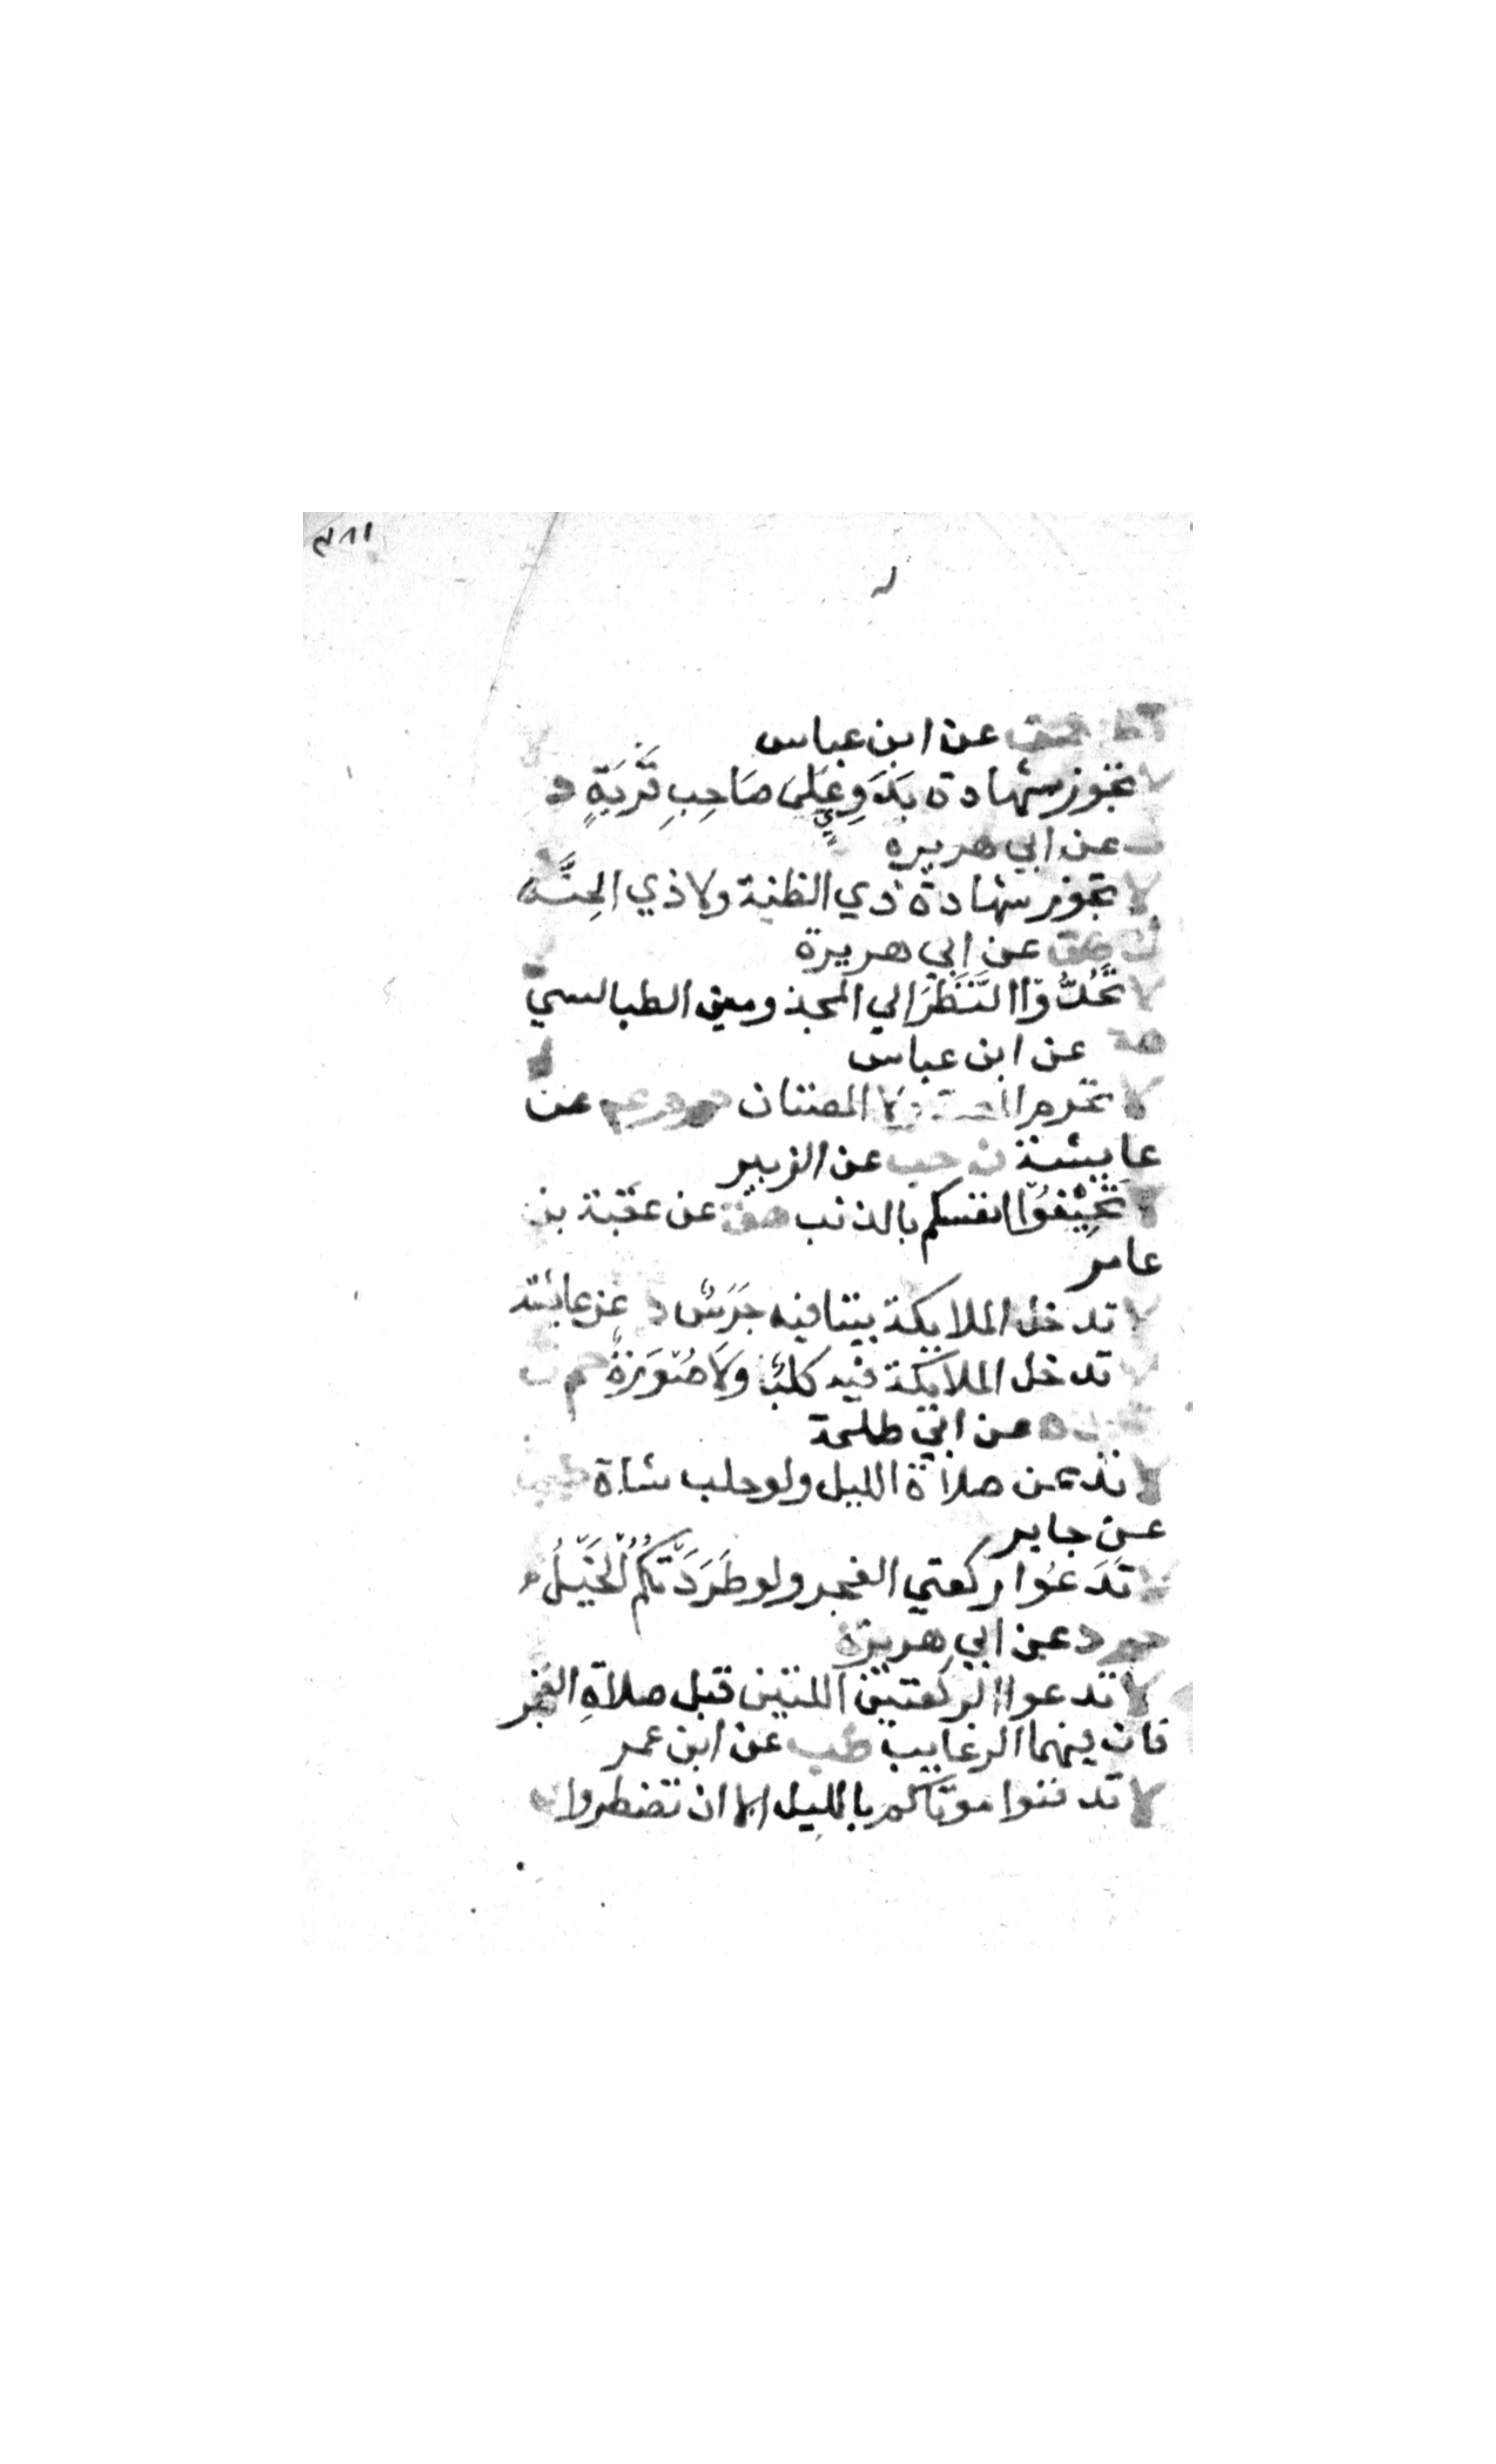 قط هق عن ابن عباس
لا تجوز شهادة بَدَوِيٍّ عَلَى صَاحِبِ قَرْيَةٍ د
عن ابي هريره
لا تجوز شهادة ذي الظنة ولا ذي الحِنَّة
ك هق عن ابي هريرة
لا تُحِدُّوا النَّظَرَ الي المجذومين الطيالسي
هق عن ابن عباس
لا تحرم المصة ولا المصتان حم م عن
عايشة ن حب عن الزبير
لا تُخِيْفُوا انفسكم بالذنب هق عن عقبة بن
عامر
لا تدخل الملايكة بيتا فيه جَرَسٌ د عن عايشة
لا تدخل الملايكة فيه كلبٌ ولَا صُوْرَةٌ حم ق
ه عن ابي طلحة
لا تدعن صلاة الليل ولو حلب شاة طب
عن جابر
لا تَدَعُوا ركعتي الفجر ولو طَرَدَتْكُمُ الخَيْلُ
حم د عن ابي هريرة
لا تدعوا الركعتين اللتين قبل صلاةِ الفجر
فان فيهما الرغايب طب عن ابن عمر
لا تدفنوا موتاكم بالليل الا ان تضطروا